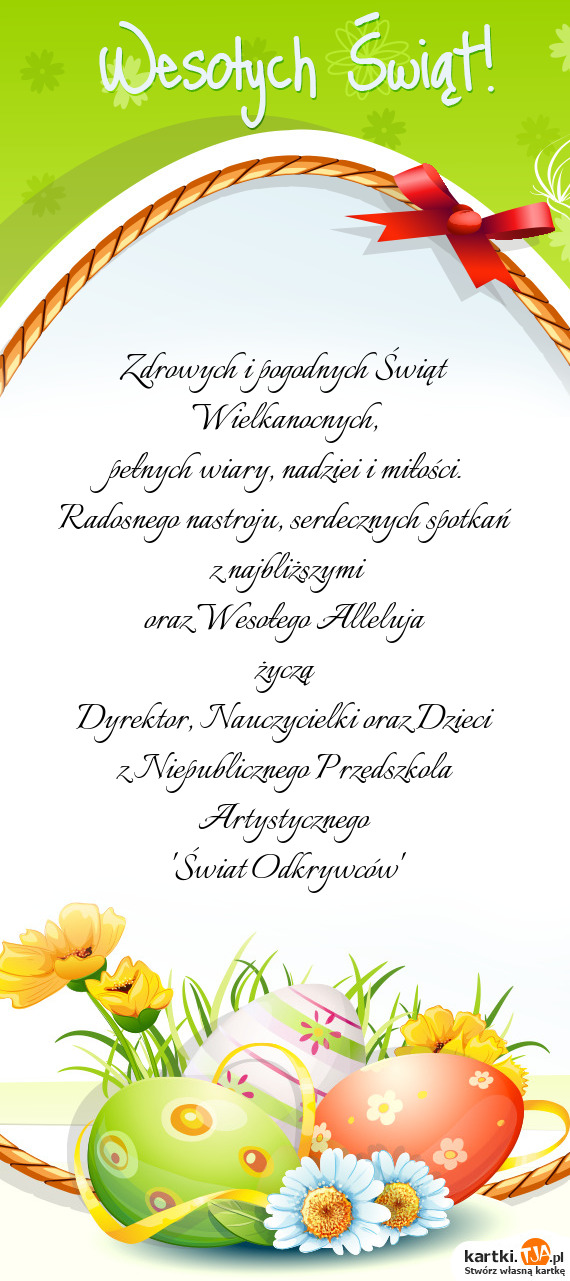 Wesołych Świąt!
Zdrowych i pogodnych Świąt
Wielkanocnych,
pełnych wiary, nadziei i miłości.
Radosnego nastroju, serdecznych spotkań
z najbliższymi
oraz Wesołego Alleluja
życzą
Dyrektor, Nauczycielki oraz Dzieci
z Niepublicznego Przedszkola
Artystycznego
"Świat Odkrywców"
kartki.TJA.pl
Stwórz własną kartkę